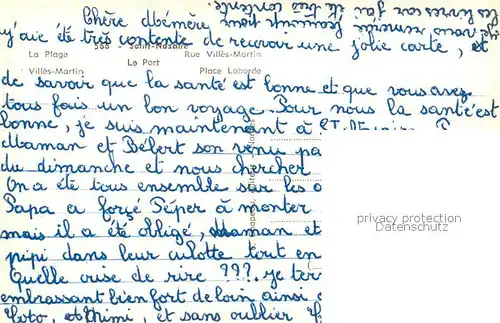 Chère Mémère,
j'ai été très contente de recevoir une jolie carte, et
558 - Saint-Nazaire
La Plage Le Port Rue Villès-Martin
Villès-Martin Place Laborde
de savoir que la santé est bonne et que vous avez
tous fais un bon voyage. Pour nous la santé est
bonne, je suis maintenant à St
Maman et Bébert son venu pa
du dimanche et nous chercher
On a été tous ensemble sur les
Papa a forçé Péper à monter
mais il a été obligé, Maman et
pipi dans leur culotte tout en
Quelle crise de rire ???. je ter
embrassant bien fort de loin ainsi
Toto, et Mimi, et sans oublier
je vous remercie
les livres car j'ai été très contente.
privacy protection
Datenschutz